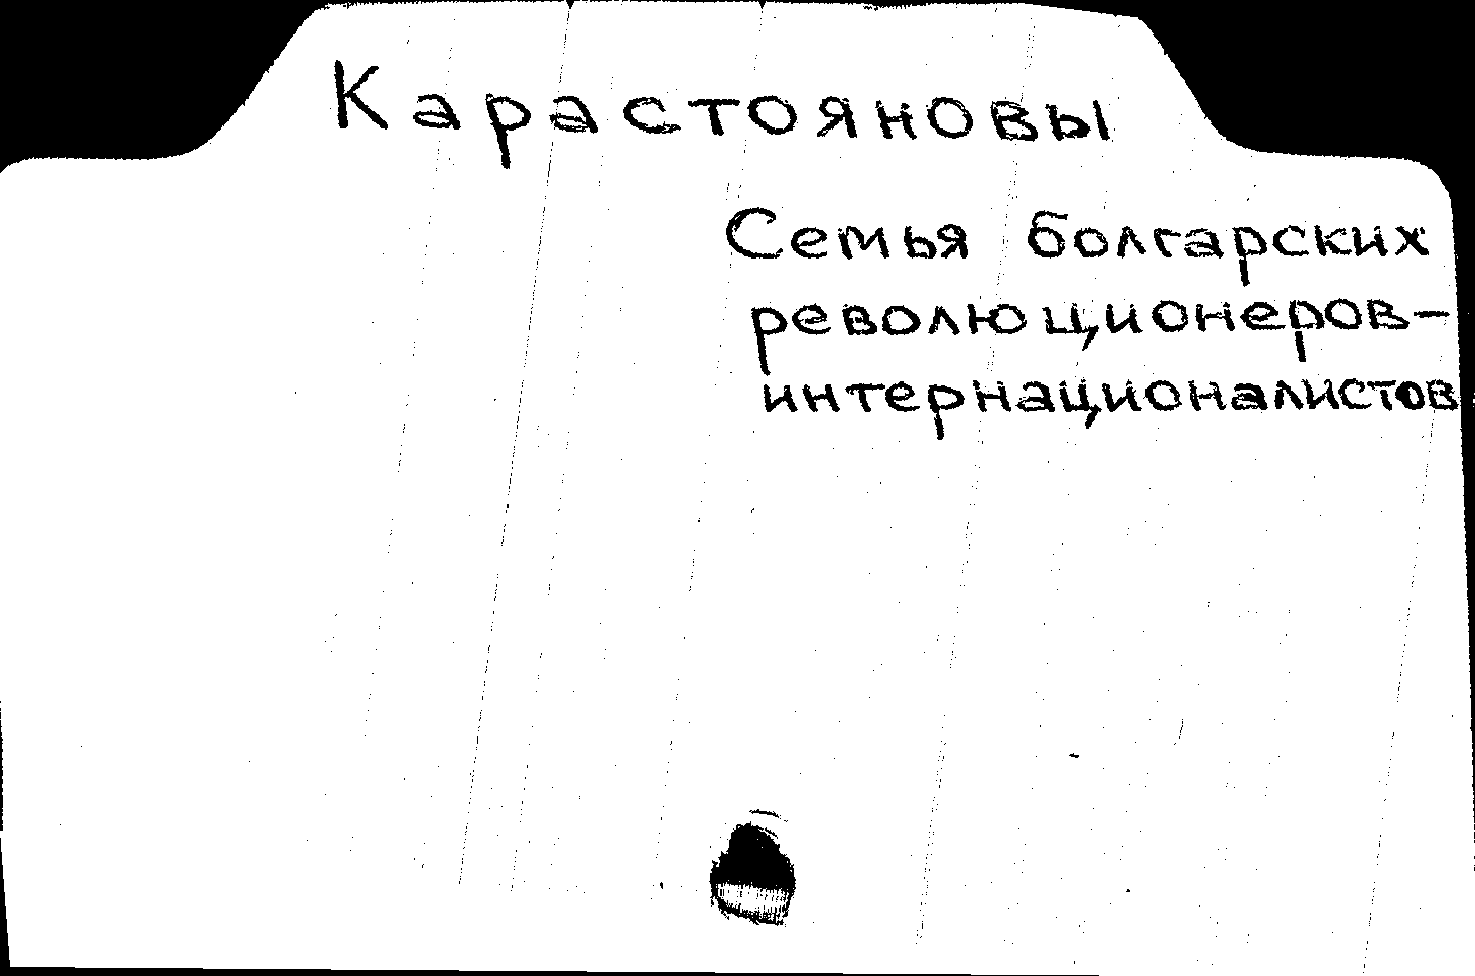 Карастояновы
Семья болгарских
революционеров-
интернационалистов